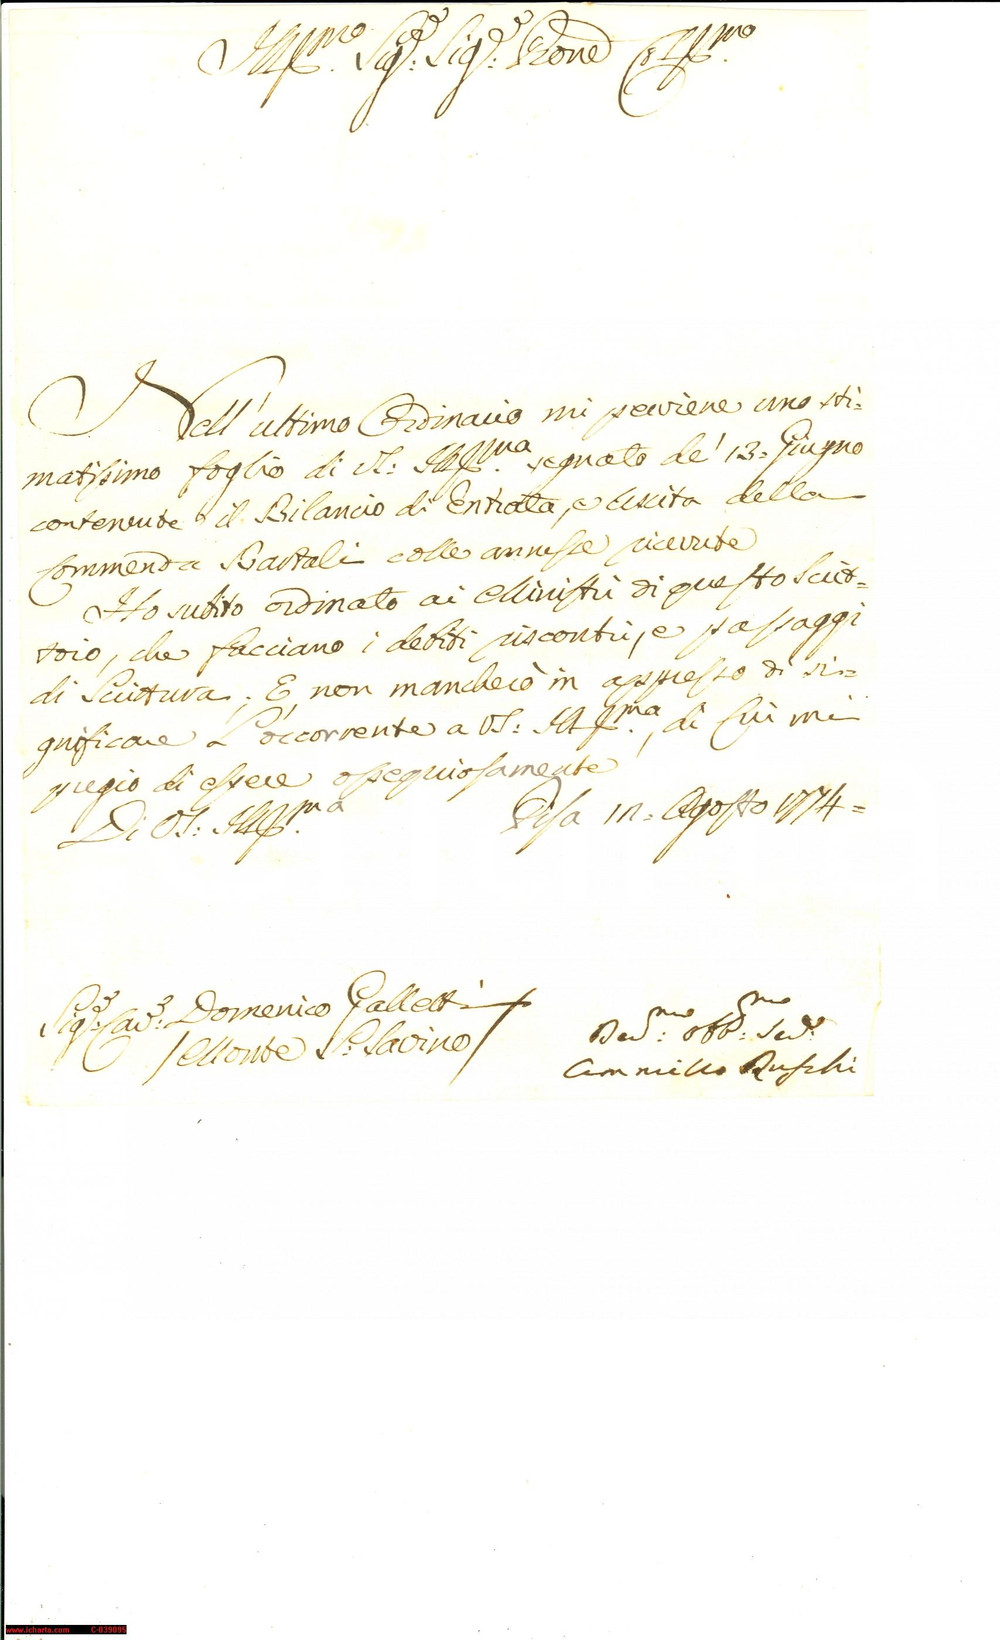 Ill.mo Sig.re Sig.re Prone Col.mo
Nell'ultimo Ordinario mi perviene uno sti=
matissimo foglio di VS: Ill.ma segnato de' 13= Giugno
contenente il Bilancio di Entrata, e Uscita della
Commenda Bartali colle annesse ricevute
Ho subito ordinato ai Ministri di questo Scrit=
toio, che facciano i debiti riscontri, e passaggi
di Scrittura. E non mancherò in appresso di si=
gnificare L'occorrente a VS: Ill.ma, di Cui mi
pregio di essere ossequiosamente
Di VS: Ill.ma Pisa 12= Agosto 1774=
Sig.re Cav.re Domenico Galletti
/Monte S. Savino/
Dev.mo obb.mo Serv.e
Cammillo Ruschi
www.icharta.com C-039005